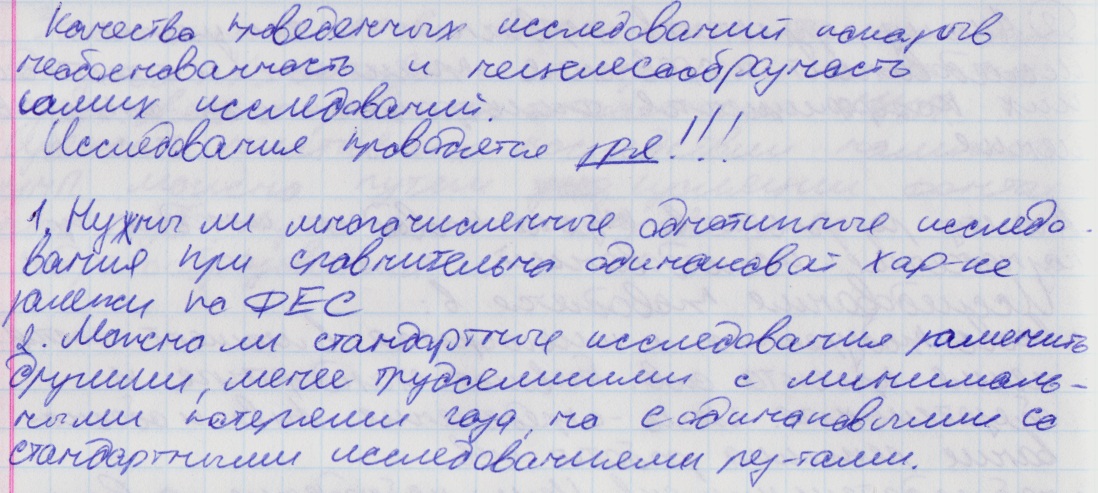 Качество проведенных исследований показыв
необоснованность и нецелесообразность
самих исследований.
Исследования проводятся зря!!!
1. Нужны ли многочисленные однотипные исследо-
вания при сравнительно одинаковой хар-ке
залежи по ФЕС
2. Можно ли стандартные исследования заменить
другими, менее трудоемкими с минималь-
ными потерями газа, но с одинаковыми со
стандартными исследованиями рез-тами.